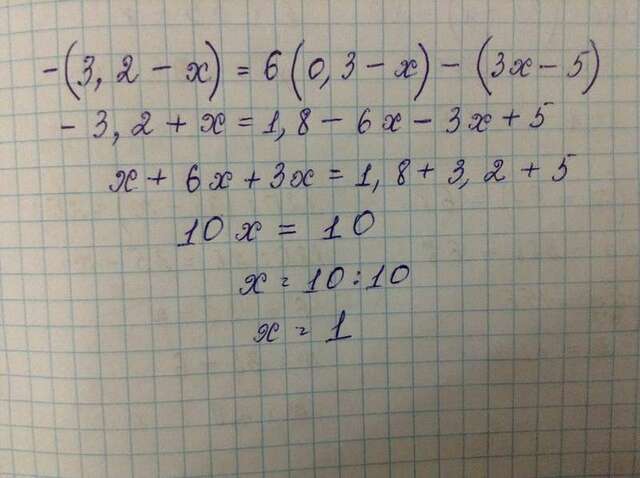 -(3,2-x)=6(0,3-x)-(3x-5)
-3,2+x=1,8-6x-3x+5
x+6x+3x=1,8+3,2+5
10x=10
x=10:10
x=1